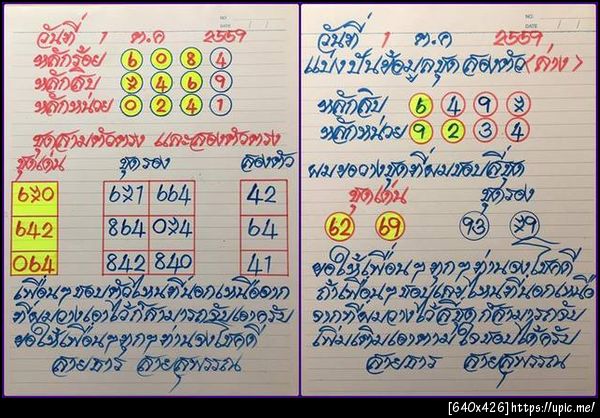 NO.
DATE / /
วันที่ 1 ต.ค 2559
หลักร้อย 6 0 8 4
หลักสิบ 7 4 6 9
หลักหน่วย 0 2 4 1
ชุดสามตัวตรง และสองตัวตรง
ชุดเด่น ชุดรอง สองตัว
670 671 664 42
642 864 074 64
064 842 840 41
เพื่อนๆชอบตัวไหนที่นอกเหนือจาก
ที่ผมวางเอาไว้ก็สามารถจับเอาครับ
ขอให้เพื่อนๆทุกๆท่านจงโชคดี
สายธาร สายสุพรรณ
NO.
DATE / /
วันที่ 1 ต.ค 2559
แบ่งปันข้อมูลชุดสองตัว(ล่าง)
หลักสิบ 6 4 9 7
หลักหน่วย 9 2 3 4
ผมขอวางชุดที่ผมชอบสี่ชุด
ชุดเด่น ชุดรอง
62 69 93 79
ขอให้เพื่อนๆทุกๆท่านจงโชคดี
ถ้าเพื่อนๆชอบเลขไหนที่นอกเหนือ
จากที่ผมวางไว้สี่ชุดก็สามารถจับ
เพิ่มเติมเอาตามใจชอบได้ครับ
สายธาร สายสุพรรณ
[640x426]https://upic.me/